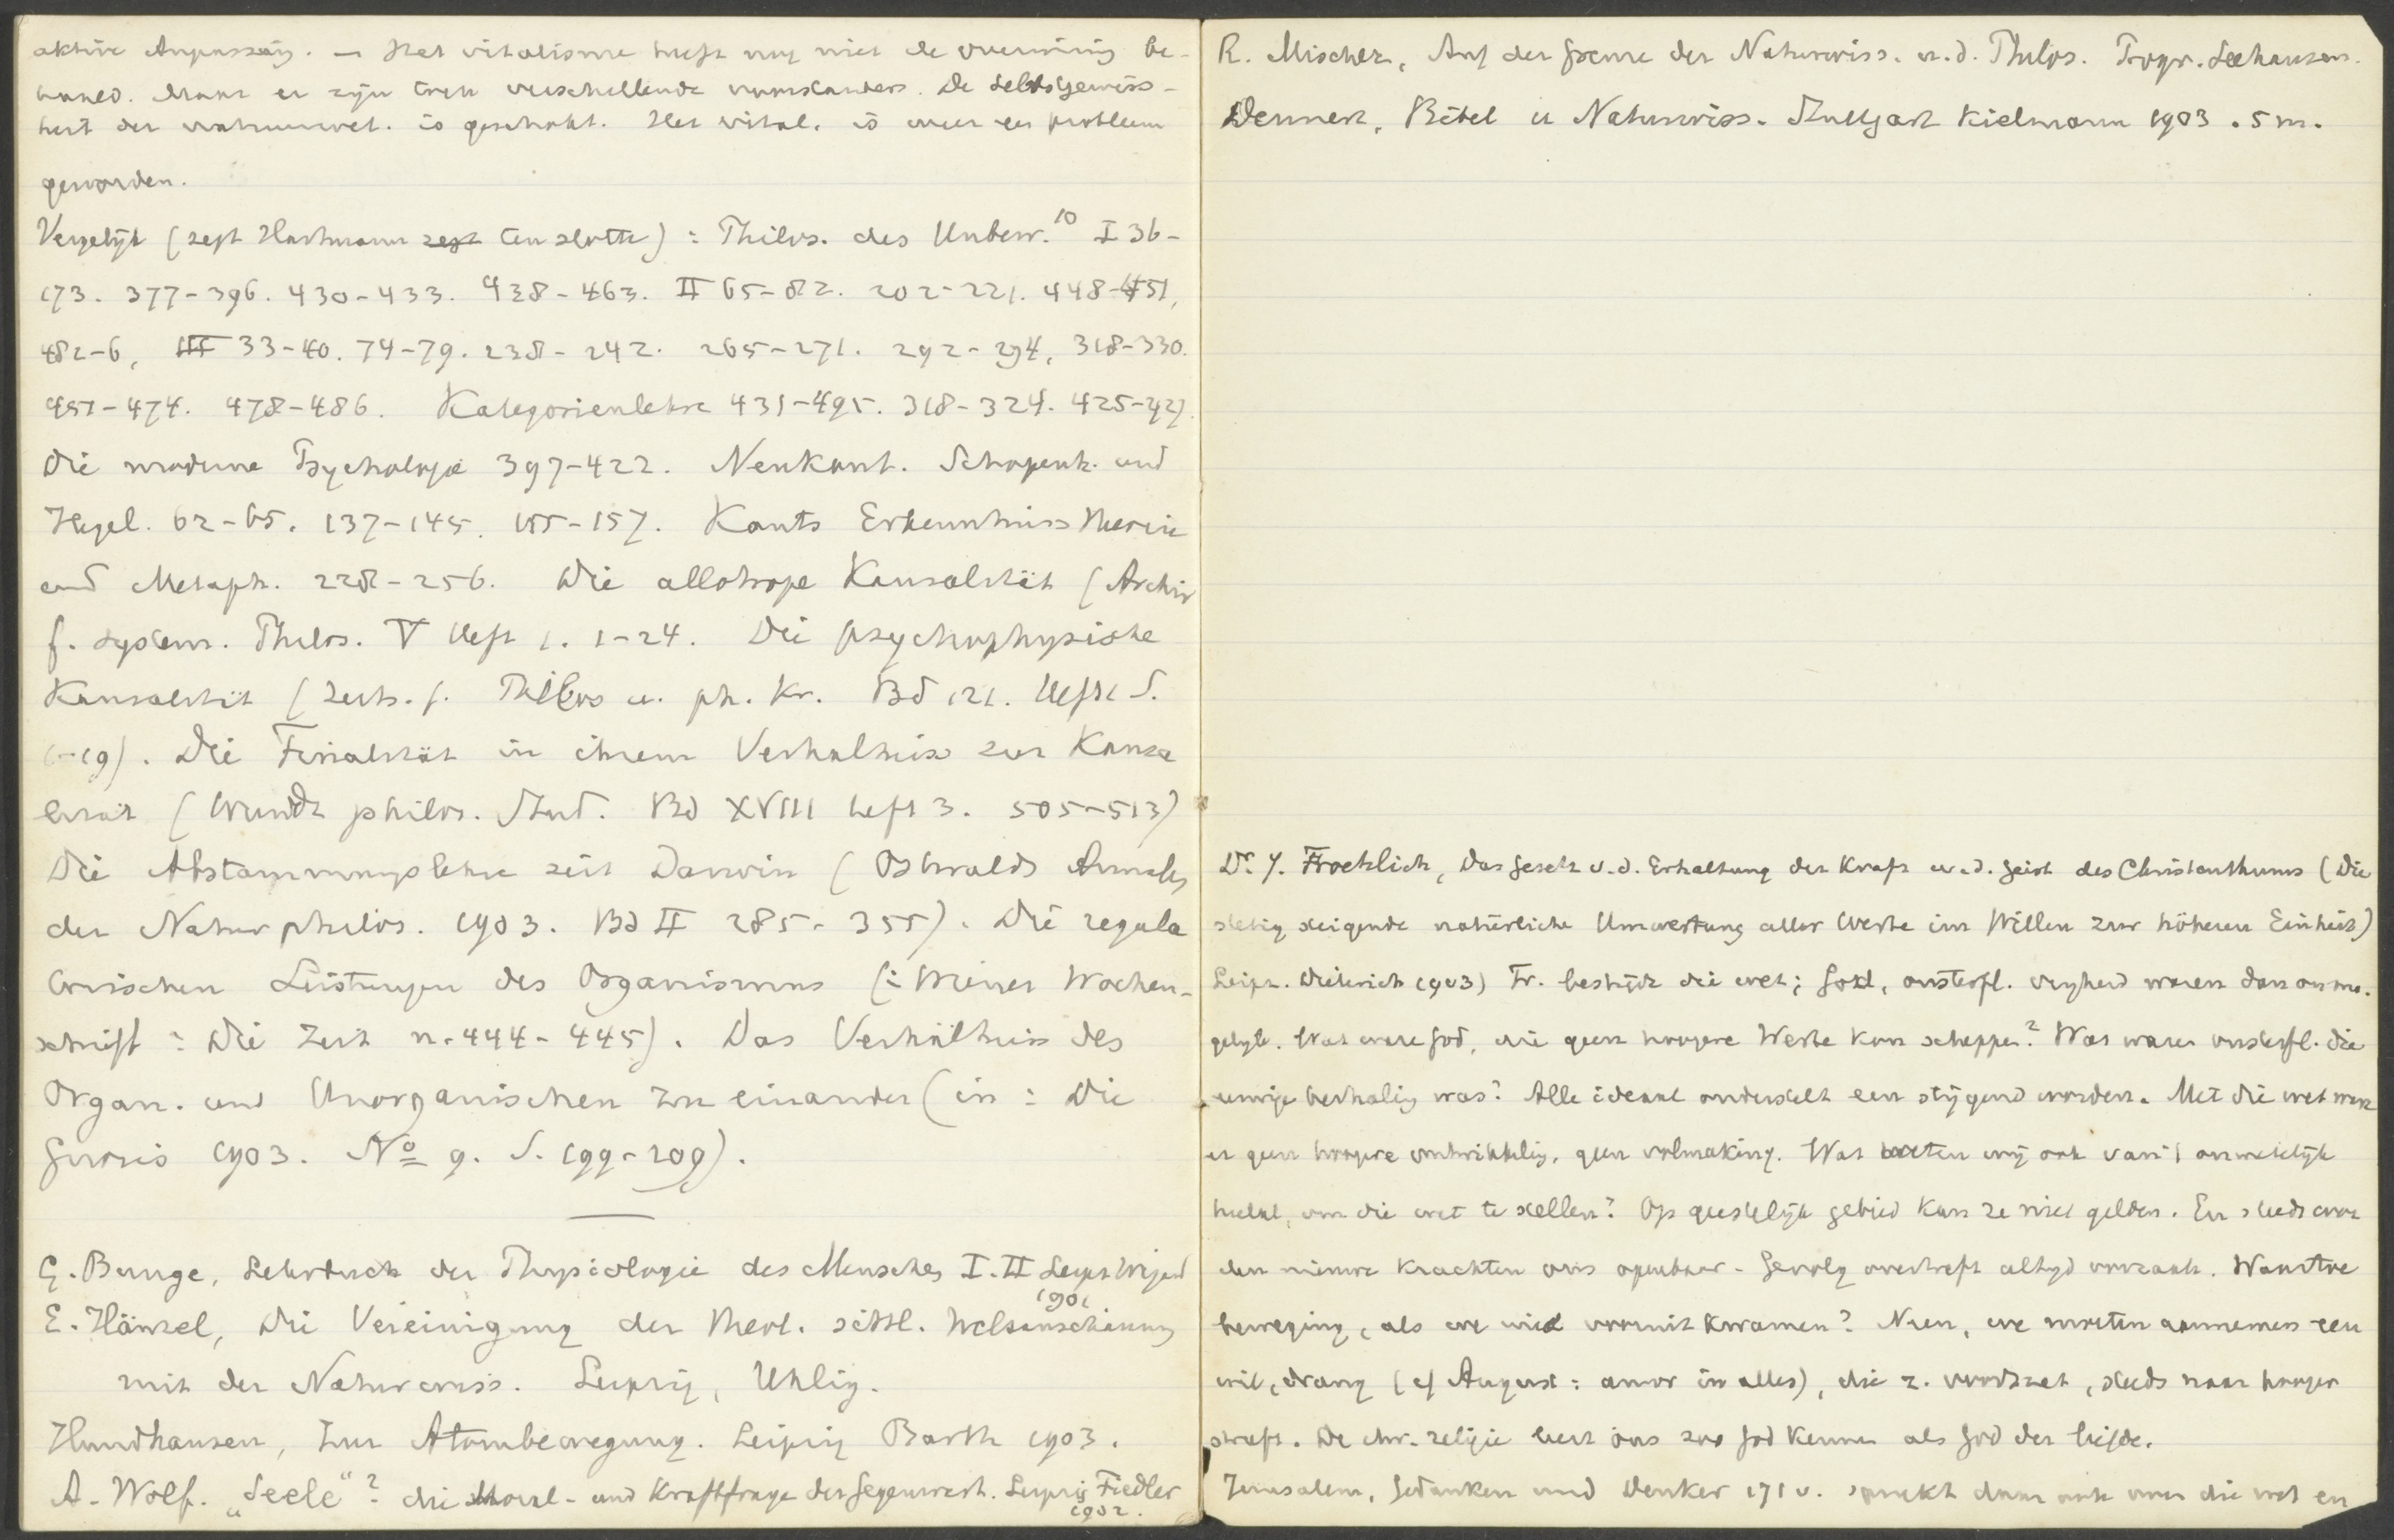 aktive Anpassung. — Het vitalisme heeft nog niet de overwinning be-
haald. Maar er zijn tien verschillende voorstanders. De selbstgewiss-
heit der natuurwet. is geschokt. Het vital. is weer een probleem
geworden.
Vergelijk (zegt Hartmann zegt ten slotte) : Philos. des Unbew.¹⁰ I 36-
173. 377-396. 430-433. 438-463. II 65-82. 202-221. 448-451,
482-6, III 33-40. 74-79. 238-242. 265-271. 292-294, 318-330.
451-474. 478-486. Kategorienlehre 431-495. 318-324. 425-427.
Die moderne Psychologie 397-422. Neukant. Schopenh. und
Hegel. 62-65. 137-145. 155-157. Kants Erkenntniss theorie
und Metaph. 228-256. Die allotrope Kausalität (Archiv
f. system. Philos. V Heft 1. 1-24. Die psychophysische
Kausalität (Zeits. f. Philos u. ph. Kr. Bd 121. Heft 1 S.
1-19). Die Finalität in ihrem Verhältniss zur Kausa
lität (Wundt philos. Stud. Bd XVIII Heft 3. 505-513)
Die Abstammungslehre seit Darwin (Ostwalds Annalen
der Naturphilos. 1903. Bd II 285-355). Die regula
torischen Leistungen des Organismus (: Wiener Wochen-
schrift : Die Zeit n. 444-445). Das Verhältniss des
Organ. und Unorganischen zu einander (in : Die
Gnosis 1903. Nº 9. S. 199-209).
G. Bunge, Lehrbuch der Physiologie des Menschen I. II Leipz Vogel
1901
E. Hänsel, Die Vereinigung der theol. sittl. Weltanschauung
mit der Naturwiss. Leipzig, Uhlig.
Hundhausen, Zur Atombewegung. Leipzig Barth 1903.
A. Wolf. „Seele“? die Moral- und Kraftfrage der Gegenwart. Leipzig Fiedler
1902.
R. Mischer, Auf der Grenze der Naturwiss. u. d. Philos. Progr. Seehausen.
Dennert, Bibel u Naturwiss. Stuttgart Kielmann 1903. 5 m.
Dr. J. Froehlich, Das Gesetz v. d. Erhaltung der Kraft u. d. Geist des Christenthums (Die
stetig steigende natürliche Umwertung aller Werte im Willen zur höheren Einheit)
Leipz. Dieterich 1903) Fr. bestrijdt die wet; God, onsterfl. vrijheid waren dan onmo-
gelijk. Wat ware God, die geen hoogere Werte kon scheppen? Wat ware onsterfl. die
eeuwige herhaling was? Alle ideaal onderstelt een stijgend worden. Met die wet ware
er geen hoogere ontwikkeling, geen volmaking. Wat weten wij ook van 't onmetelijk
heelal, om die wet te stellen? Op geestelijk gebied kan ze niet gelden. En steeds wor
den nieuwe krachten ons openbaar. Gevolg overtreft altijd oorzaak. Waartoe
beweging, als we niet vooruit kwamen? Neen, we moeten aannemen een
wil, drang (cf August : amor in alles), die z. voortzet, steeds naar hooger
streeft. De chr. religie leert ons zoo God kennen als God der liefde.
Jerusalem, Gedanken und Denker 171 v. spreekt daar ook over die wet en